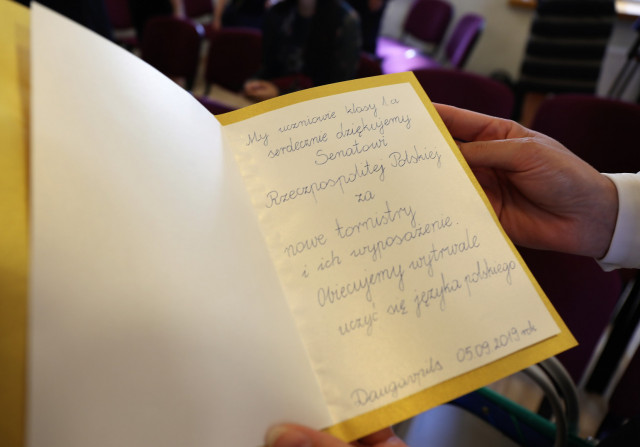 My uczniowie klasy 1.a
serdecznie dziękujemy
Senatowi
Rzeczpospolitej Polskiej
za
nowe tornistry
i ich wyposażenie.
Obiecujemy wytrwale
uczyć się języka polskiego
Daugavpils 05.09.2019 rok